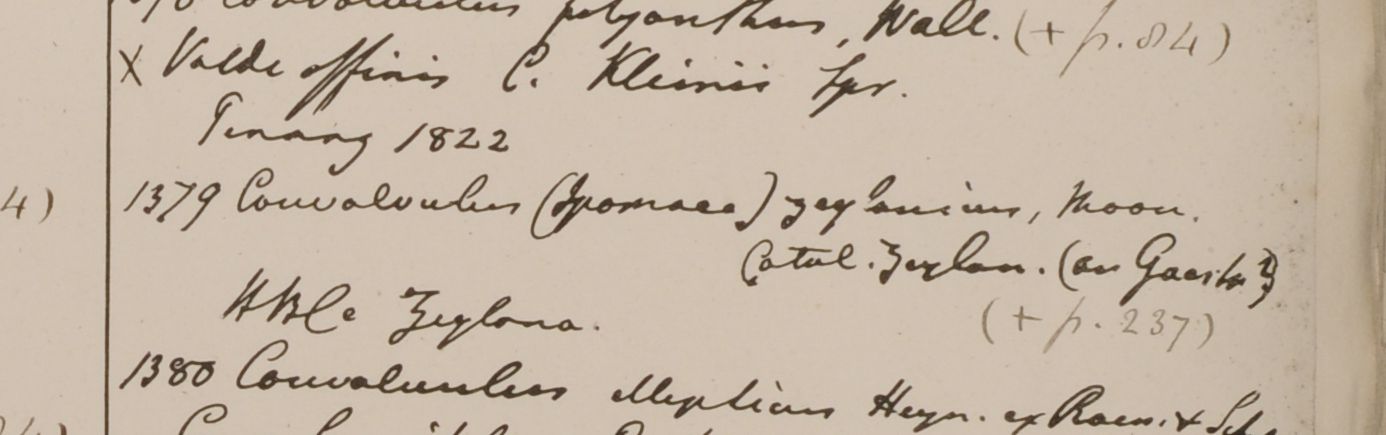 Convolvulus polyanthus, Wall. (+ p. 84)
X Valde affinis C. Kleinii Spr.
Penang 1822
4) 1379 Convolvulus (Ipomaea) zeylanicus, Moon.
Catal. Zeylan. (an Gaertn?)
HBC e Zeylona.
(+ p. 237)
1380 Convolvulus ellipticus Heyn. ex Roem. &